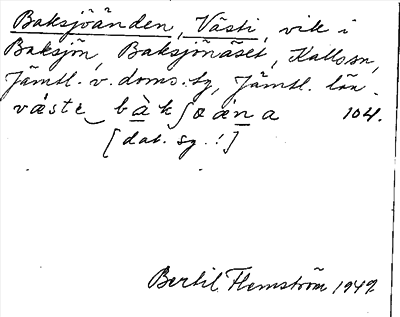 Baksjöänden, Västi, vik i
Baksjön, Baksjönäset, Kall sn,
Jämtl. v. doms. tg, Jämtl. län.
väste bàkʃøäna 104.
[dat. sg.!]
Bertil Flemström 1949.